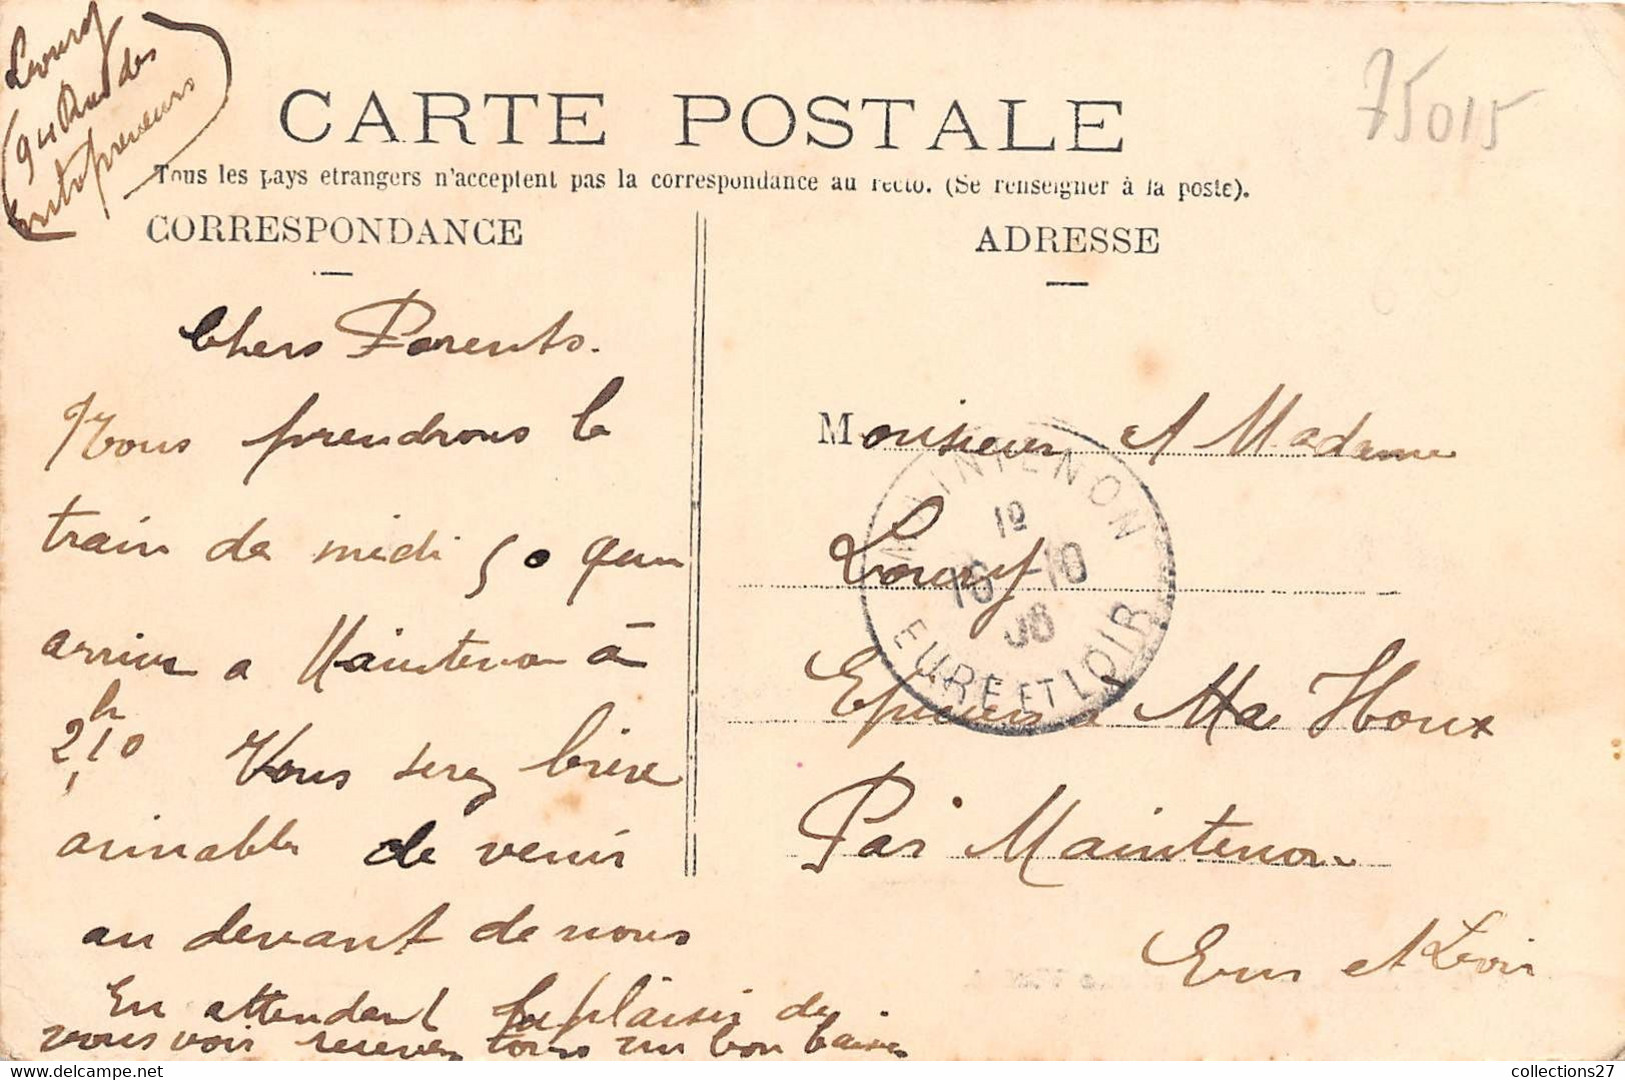 Loury
94 Rue des
Entrepreneurs
75015
CARTE POSTALE
Tous les pays etrangers n'acceptent pas la correspondance au recto. (Se renseigner à la poste).
CORRESPONDANCE
Chers Parents.
Nous prendrons le
train de midi 50 qui
arrive a Maintenon à
2h 10 Vous serez bien
aimable de venir
au devant de nous
En attendant le plaisir de
vous voir recevez tous un bon baiser
ADRESSE
Monsieur et Madame
Loury
Epiciers a Ma Houx
Par Maintenon
Eure et Loir
MAINTENON
16 -10
06
EURE ET LOIR
collections27